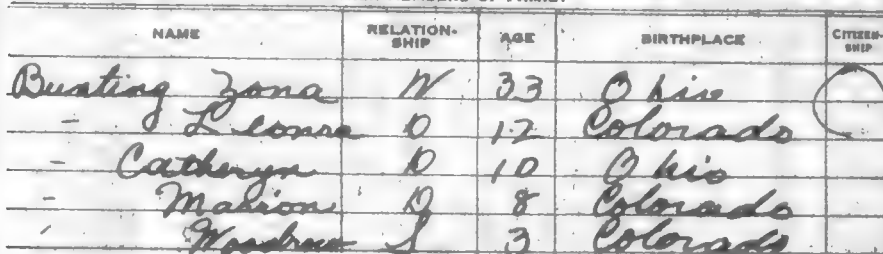 NAME RELATION-SHIP AGE BIRTHPLACE CITIZEN-SHIP
Bunting Zona W 33 Ohio
- Leonra D 12 Colorado
- Catheryn D 10 Ohio
- Marion D 8 Colorado
- Woodrow S 3 Colorado